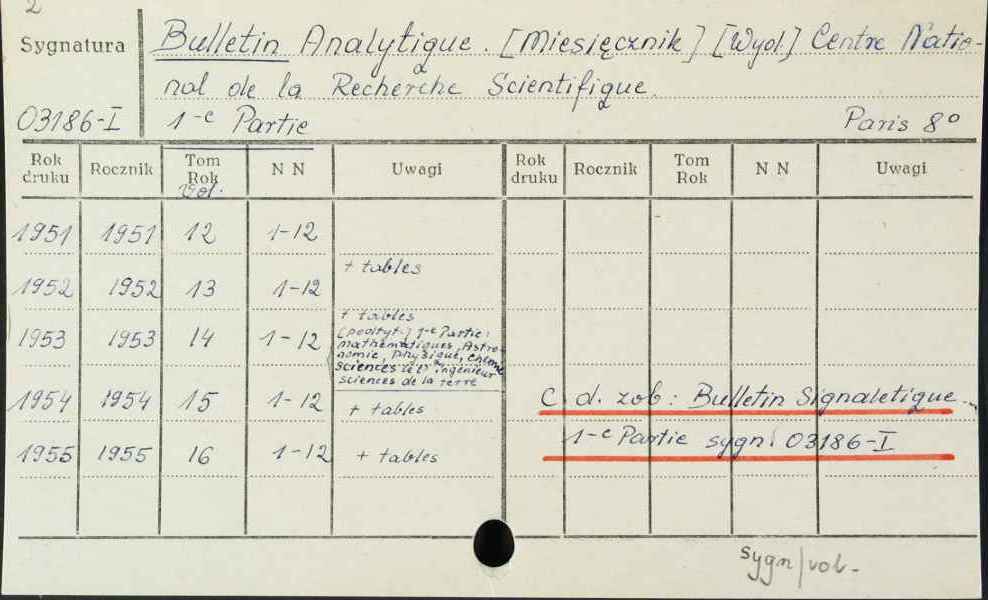 2
Sygnatura
Bulletin Analytique. [Miesięcznik] [Wyd.] Centre Natio-
nal de la Recherche Scientifique.
03186-I 1-e Partie Paris 8°
Rok druku Rocznik Tom Rok Vol. NN Uwagi Rok druku Rocznik Tom Rok NN Uwagi
1951 1951 12 1-12
+ tables
1952 1952 13 1-12
+ tables
(podtyt.) 1-e Partie:
1953 1953 14 1-12
mathématiques, Astro-
nomie, Physique, Chimie
sciences de l'ingénieur
sciences de la terre
1954 1954 15 1-12 + tables
C. d. zob: Bulletin Signaletique
1-e Partie sygn. 03186-I
1955 1955 16 1-12 + tables
sygn/vol.